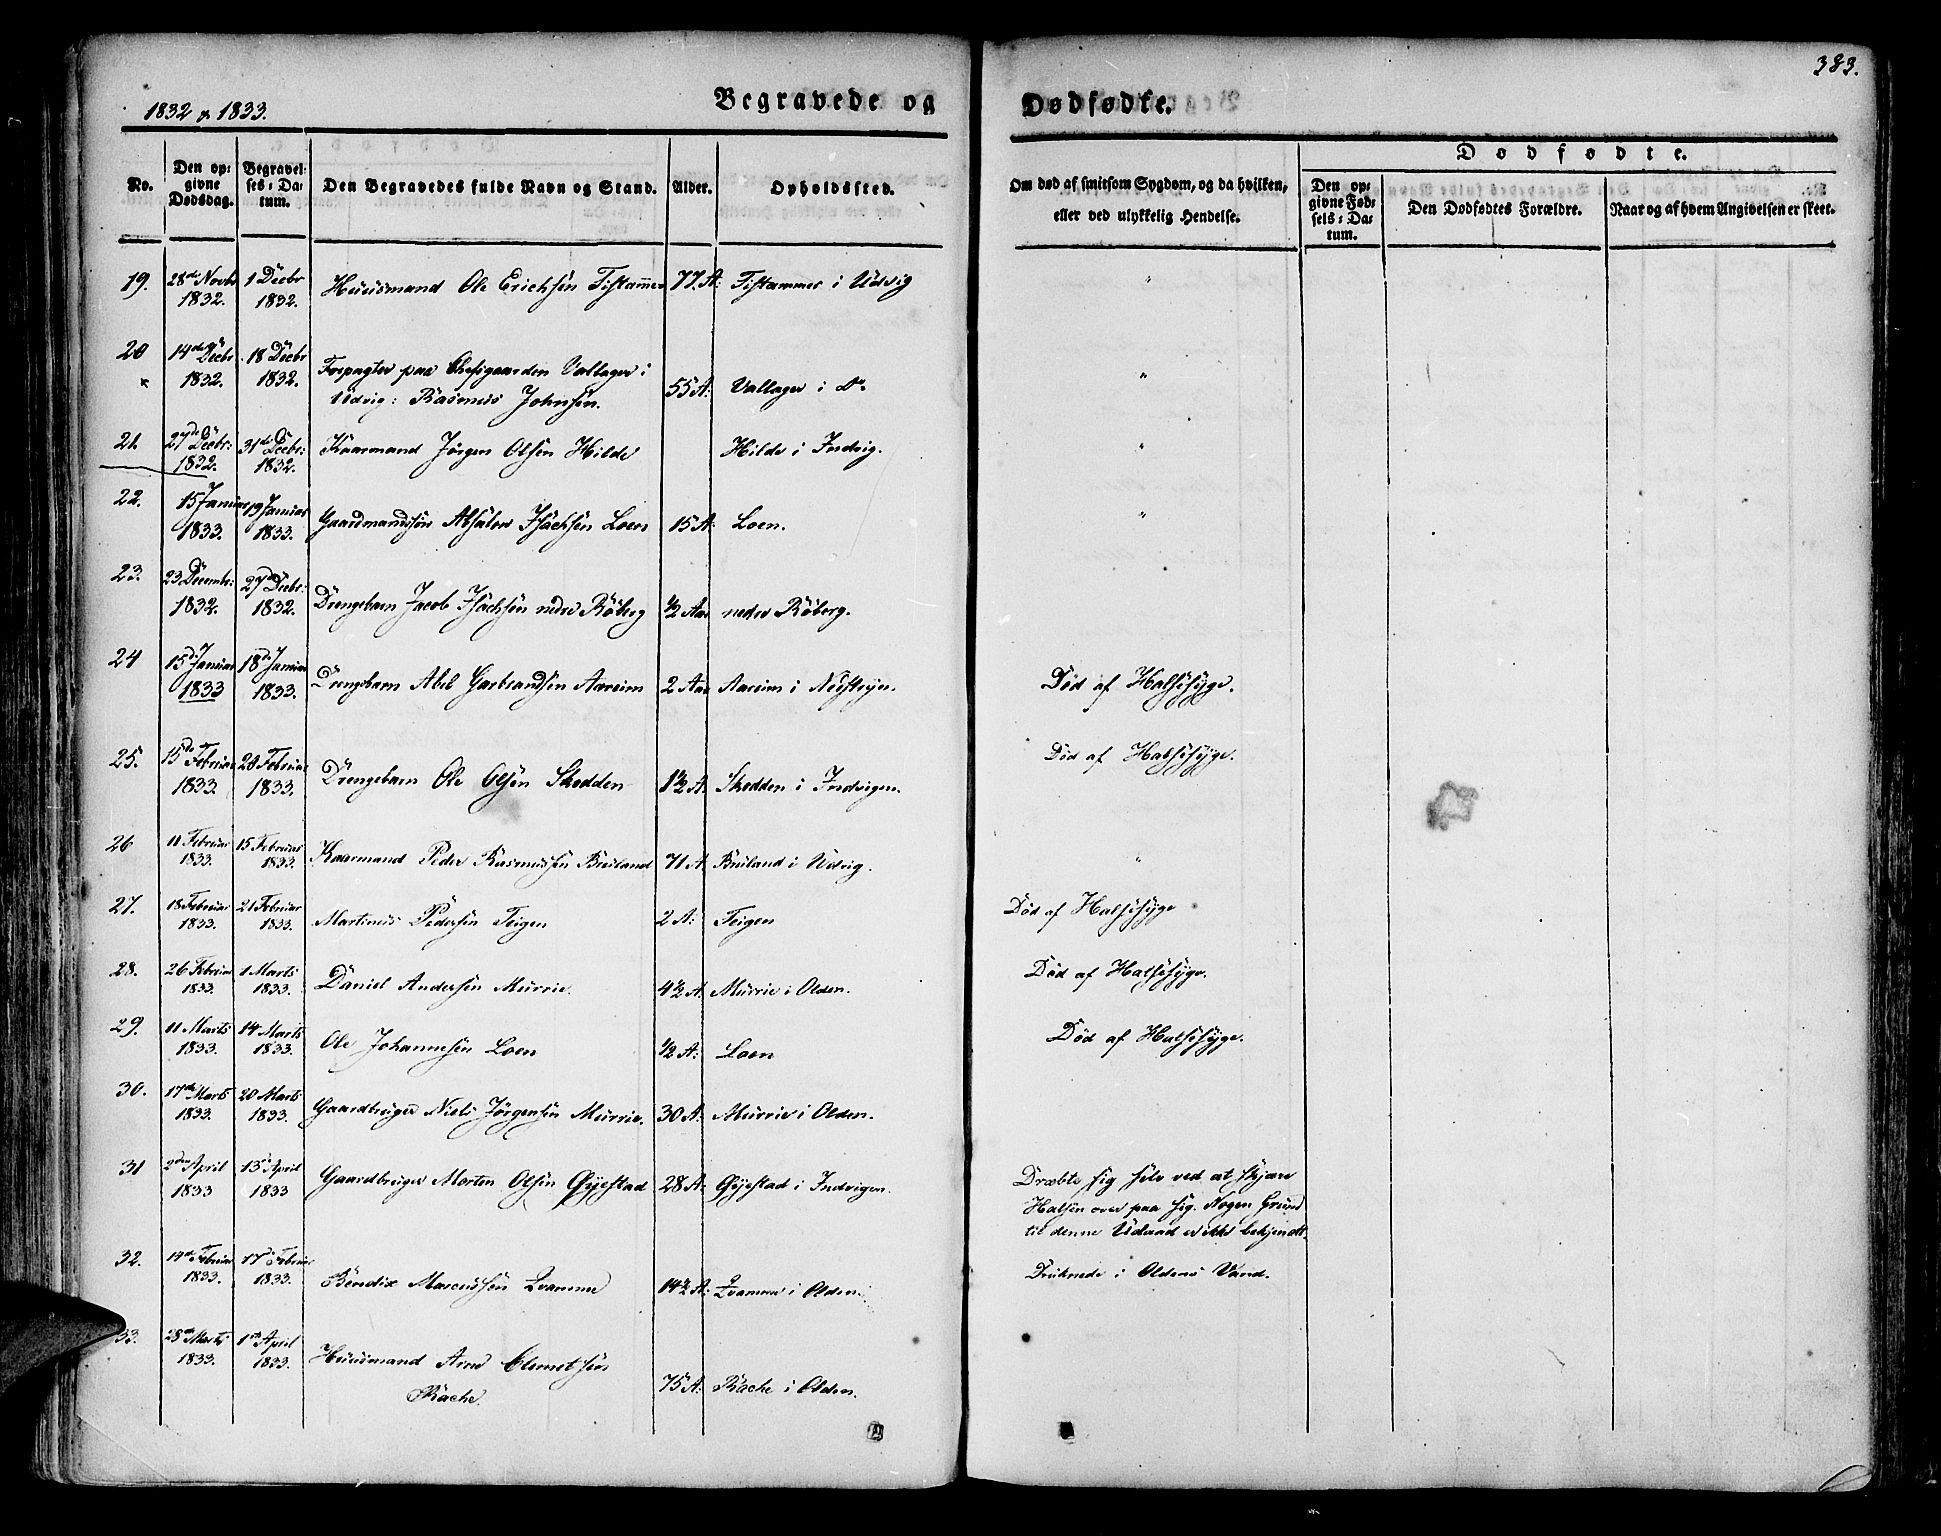 383.
1832 & 1833.
Begravede og Dødfødte.
Dødfødte.
No.
Den opgivne Dødsdag.
Begravelses-Datum.
Den Begravedes fulde Navn og Stand.
Alder.
Opholdssted.
Om død af smitsom Sygdom, og da hvilken, eller ved ulykkelig Hendelse.
Den opgivne Fødsels-Datum.
Den Dødfødtes Forældre.
Naar og af hvem Angivelsen er skeet.
19. 28de Novbr 1832. 1 Decbr 1832. Huusmand Ole Erichsen Tistammer 77 A: Tistammer i Udvig "
20 14de Decbr 1832. 18 Decbr 1832. Forpagter paa Chefsgaarden Vallager i Udvig: Rasmus Johnsen. 55 A: Vallager i do "
21. 27de Decbr: 1832. 31de Decbr: 1832. Kaarmand Jørgen Olsen Hilde Hilde i Indvig. "
22. 15 Januar 1833. 19 Januar 1833. Gaardmandssøn Absalon Isachsen Loen 15 A: Loen. "
23. 23 Decembr: 1832. 27de Decbr: 1832. Drengebarn Jacob Isachsen nedre Røberg 1/2 Aar nedre Røberg.
24 15de Januar 1833 18de Januar 1833. Drengebarn Abel Garbrandsen Aareim 2 Aar Aareim i Nestryn. Død af Halsesyge.
25. 15de Februar 1833. 20 Februar 1833. Drengebarn Ole Olsen Skedden 1 1/2 A: Skedden i Indvigen. Død af Halsesyge.
26 11 Februar 1833. 15 Februar 1833. Kaarmand Peder Rasmussen Breiland 71 A: Breiland i Udvig. "
27. 18 Februar 1833. 21 Februar 1833. Martinus Pedersen Teigen 2 A: Teigen Død af Halsesyge
28. 26 Februar 1833. 1 Marts 1833. Daniel Andersen Murrie. 4 1/2 A: Murrie i Olden. Død af Halsesyge.
29. 11 Marts 1833. 14 Marts 1833. Ole Johannesen Loen 1/2 A: Loen Død af Halsesyge.
30. 17de Marts 1833. 20 Marts 1833. Gaardbruger Niels Jørgensen Murrie. 30 A: Murrie i Olden.
31 2den April 1833 13de April 1833 Gaardbruger Morten Olsen Gjestad 28 A: Gjestad i Indvigen. Dræbte sig selv ved at skjære
Halsen over paa sig. Nogen Grund
til denne Udaad er ikke bekjendt.
32. 14de Februar 1833. 17de Februar 1833. Bendix Marcussen Qvamme 14 1/2 A: Qvamme i Olden. Druknede i Oldens Vand.
33. 28de Marts 1833. 1ste April 1833. Huusmand Arne Clemetsen Rache. 75 A: Rache i Olden.